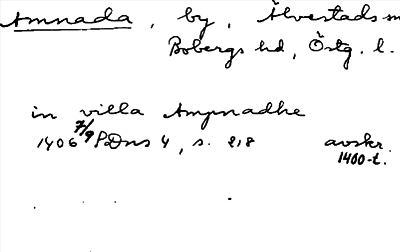 Amnada, by, Älvestads
Bobergs hd, Östg. l.
in villa Ampnadhe
1406 7/9 SDns 1, s. 218 avskr.
1400-t.